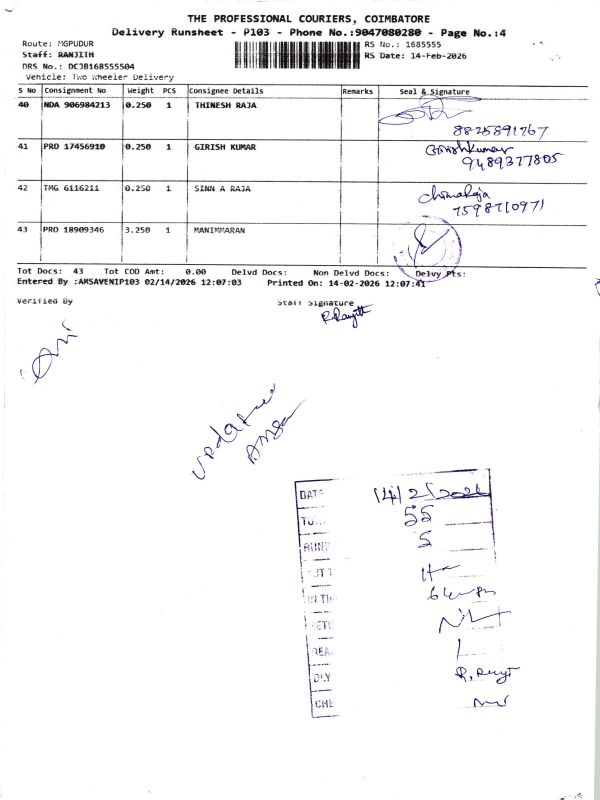 THE PROFESSIONAL COURIERS, COIMBATORE
Delivery Runsheet - P103 - Phone No.:9047080280 - Page No.:4
Route: MGPUDUR
RS No.: 1685555
Staff: RANJITH
RS Date: 14-Feb-2026
DRS No.: DCJB168555504
Vehicle: Two Wheeler Delivery
S No Consignment No Weight PCS Consignee Details Remarks Seal & Signature
40 NDA 906984213 0.250 1 THINESH RAJA
8825891767
41 PRO 17456910 0.250 1 GIRISH KUMAR Girishkumar
9489377805
42 TMG 6116211 0.250 1 SINN A RAJA
7598710971
43 PRO 18909346 3.250 1 MANIMMARAN
Tot Docs: 43 Tot COD Amt: 0.00 Delvd Docs: Non Delvd Docs: Delvy Pts:
Entered By :AMSAVENIP103 02/14/2026 12:07:03 Printed On: 14-02-2026 12:07:41
Verified By Staff Signature
updated
Amsa
DATE 14/2/2026
55
5
R. Ranjit